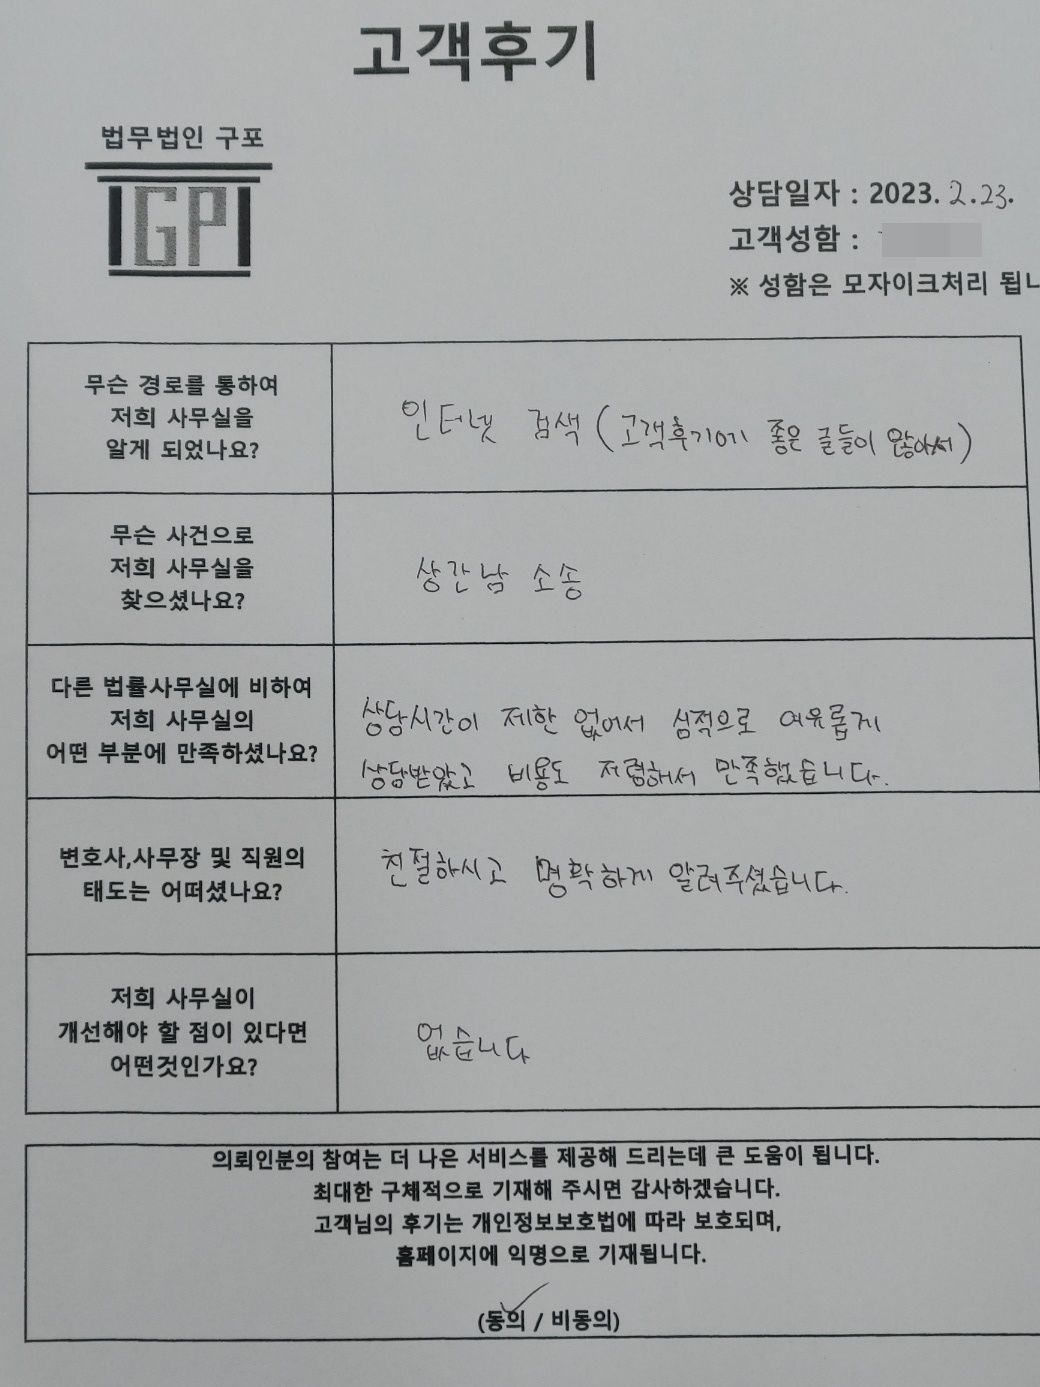 고객후기
법무법인 구포
IGPI
상담일자 : 2023. 2.23.
고객성함 :
※ 성함은 모자이크처리 됩니
무슨 경로를 통하여
저희 사무실을
알게 되었나요?
인터넷 검색 (고객후기에 좋은 글들이 많아서)
무슨 사건으로
저희 사무실을
찾으셨나요?
상간남 소송
다른 법률사무실에 비하여
저희 사무실의
어떤 부분에 만족하셨나요?
상담시간이 제한 없어서 심적으로 여유롭게
상담받았고 비용도 저렴해서 만족했습니다.
변호사,사무장 및 직원의
태도는 어떠셨나요?
친절하시고 명확하게 알려주셨습니다.
저희 사무실이
개선해야 할 점이 있다면
어떤것인가요?
없습니다
의뢰인분의 참여는 더 나은 서비스를 제공해 드리는데 큰 도움이 됩니다.
최대한 구체적으로 기재해 주시면 감사하겠습니다.
고객님의 후기는 개인정보보호법에 따라 보호되며,
홈페이지에 익명으로 기재됩니다.
(동의 / 비동의)